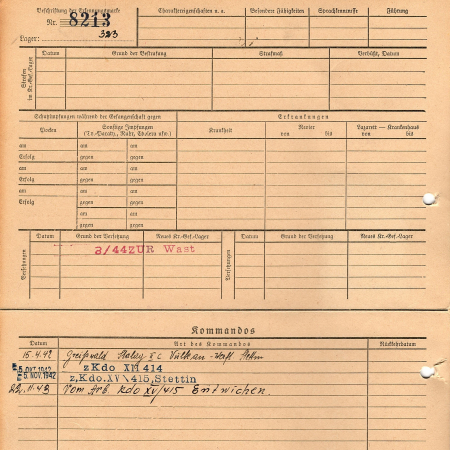 Beschriftung der Erkennungsmarke
Nr. 8213
Lager: 323
Charaktereigenschaften u. a.
Besondere Fähigkeiten
Sprachkenntnisse
Führung
Strafen im Kr.-Gef.-Lager
Datum
Grund der Bestrafung
Strafmaß
Verbüßt, Datum
Schutzimpfungen während der Gefangenschaft gegen
Erkrankungen
Pocken
Sonstige Impfungen
(Ty.-Paraty., Ruhr, Cholera usw.)
Krankheit
Revier
von bis
Lazarett — Krankenhaus
von bis
am am am
Erfolg gegen gegen
am am am
Erfolg gegen gegen
am am am
Erfolg gegen gegen
am am
gegen gegen
Versetzungen
Datum
Grund der Versetzung
Neues Kr.-Gef.-Lager
Versetzungen
Datum
Grund der Versetzung
Neues Kr.-Gef.-Lager
a/44ZUR Wast
Kommandos
Datum
Art des Kommandos
Rückkehrdatum
15.4.42 Greifswald Stalag II C Vulkan-Werft Stettin
5. OKT. 1942 z Kdo XII 414
5. NOV. 1942 z, Kdo. XV\415, Stettin
22.11.43 Vom Arb. Kdo XV/415 Entwichen.